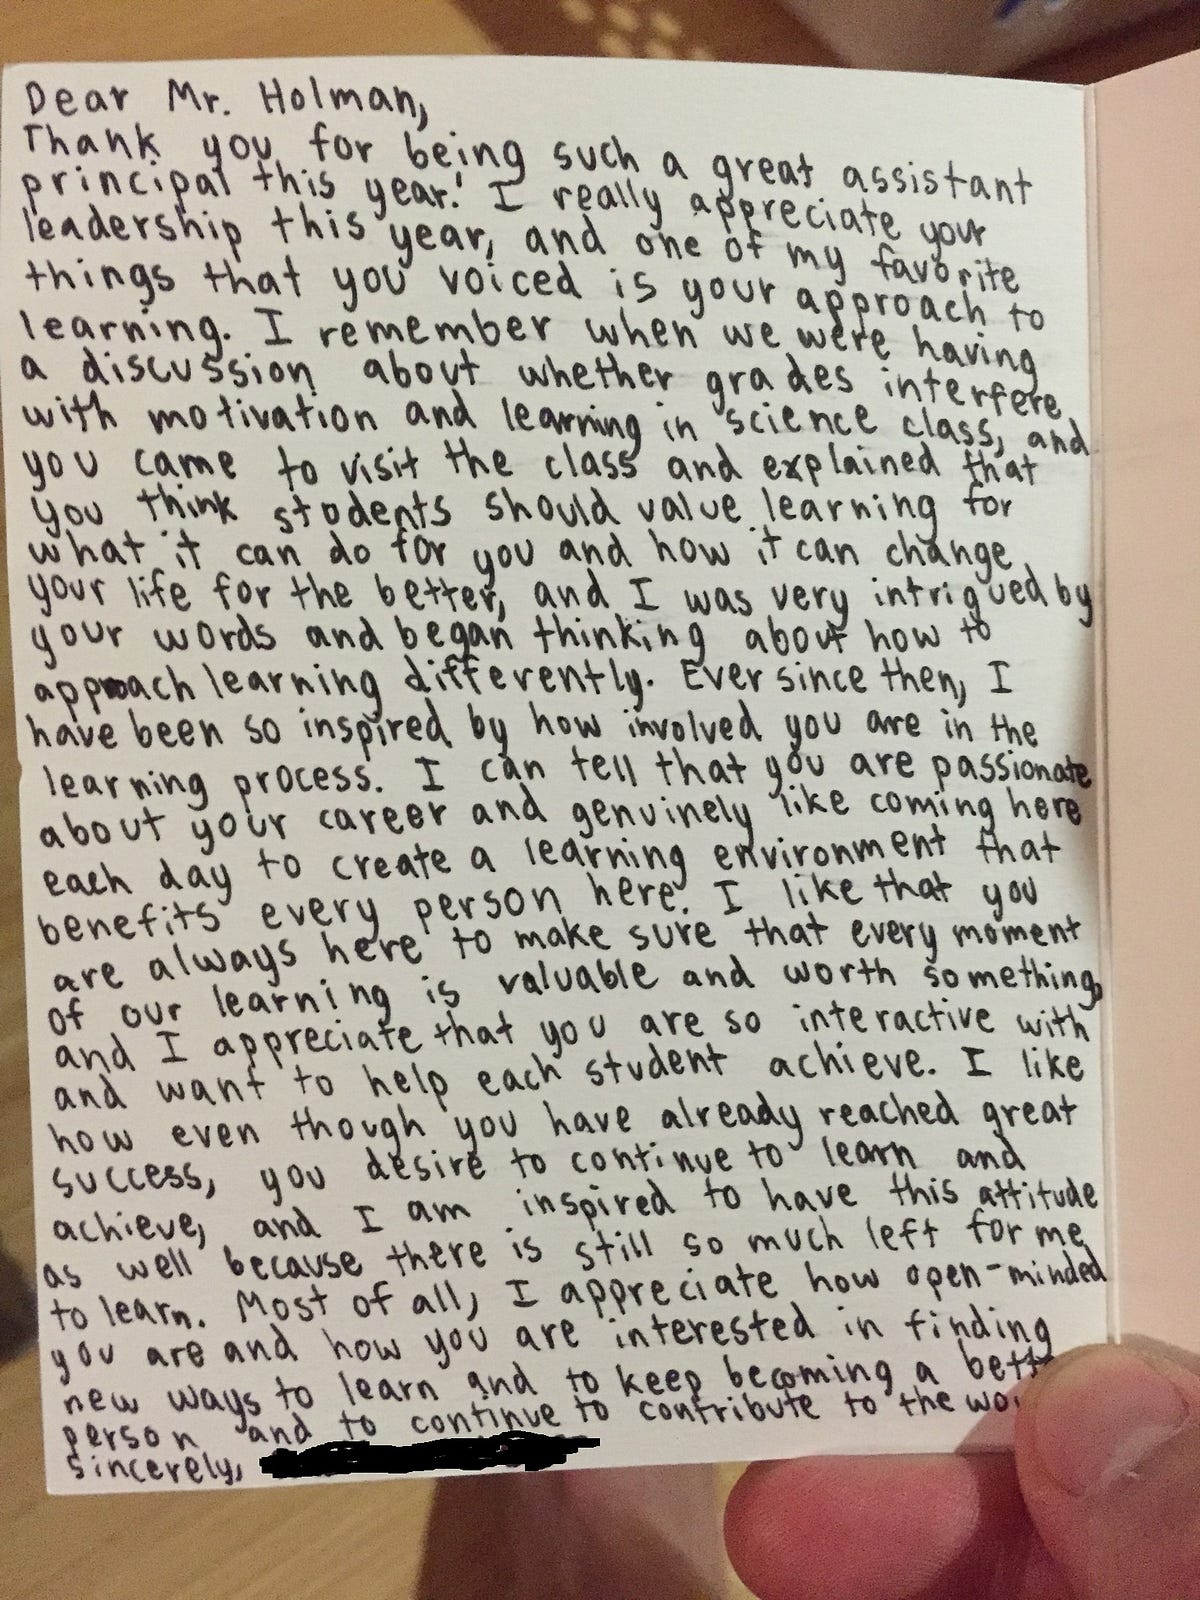 Dear Mr. Holman,
Thank you for being such a great assistant
principal this year! I really appreciate your
leadership this year, and one of my favorite
things that you voiced is your approach to
learning. I remember when we were having
a discussion about whether grades interfere
with motivation and learning in science class, and
you came to visit the class and explained that
you think students should value learning for
what it can do for you and how it can change
your life for the better, and I was very intrigued by
your words and began thinking about how to
approach learning differently. Ever since then, I
have been so inspired by how involved you are in the
learning process. I can tell that you are passionate
about your career and genuinely like coming here
each day to create a learning environment that
benefits every person here. I like that you
are always here to make sure that every moment
of our learning is valuable and worth something,
and I appreciate that you are so interactive with
and want to help each student achieve. I like
how even though you have already reached great
success, you desire to continue to learn and
achieve, and I am inspired to have this attitude
as well because there is still so much left for me
to learn. Most of all, I appreciate how open-minded
you are and how you are interested in finding
new ways to learn and to keep becoming a
person and to continue to contribute to the
Sincerely,